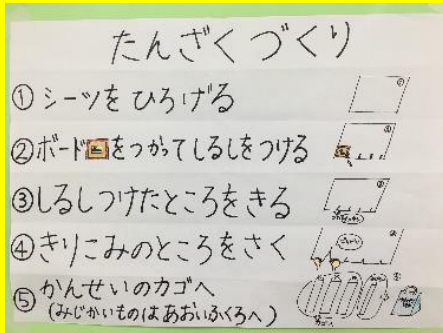 たんざくづくり
① シーツをひろげる
② ボードをつかってしるしをつける
③ しるしつけたところをきる
④ きりこみのところをさく
⑤ かんせいのカゴへ
(みじかいものはあおいふくろへ)